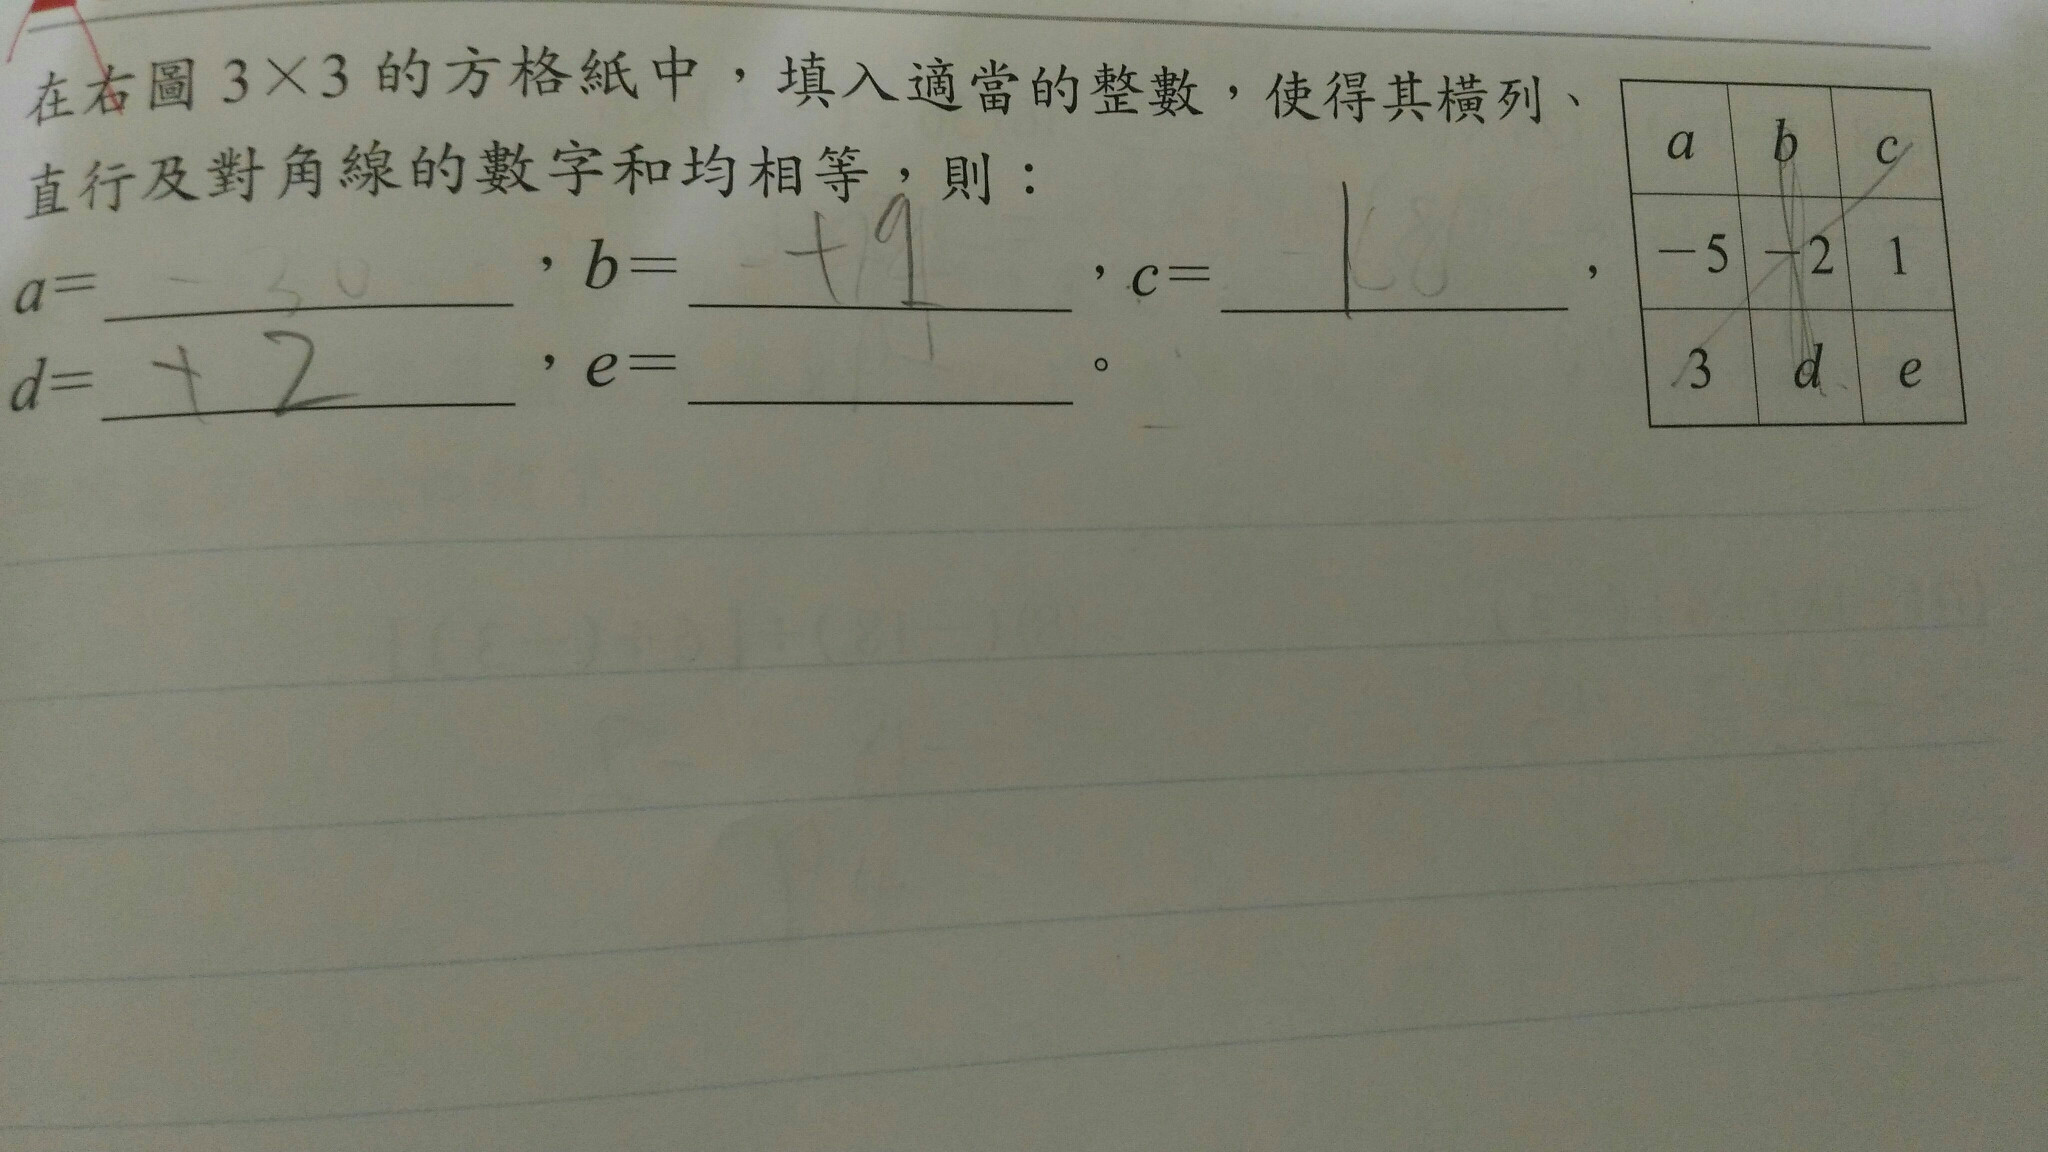 在右圖 3×3 的方格紙中，填入適當的整數，使得其橫列、
直行及對角線的數字和均相等，則：
a= ，b= +9 ，c= 1 ，
d= +2 ，e= 。
a b c
－5 －2 1
3 d e